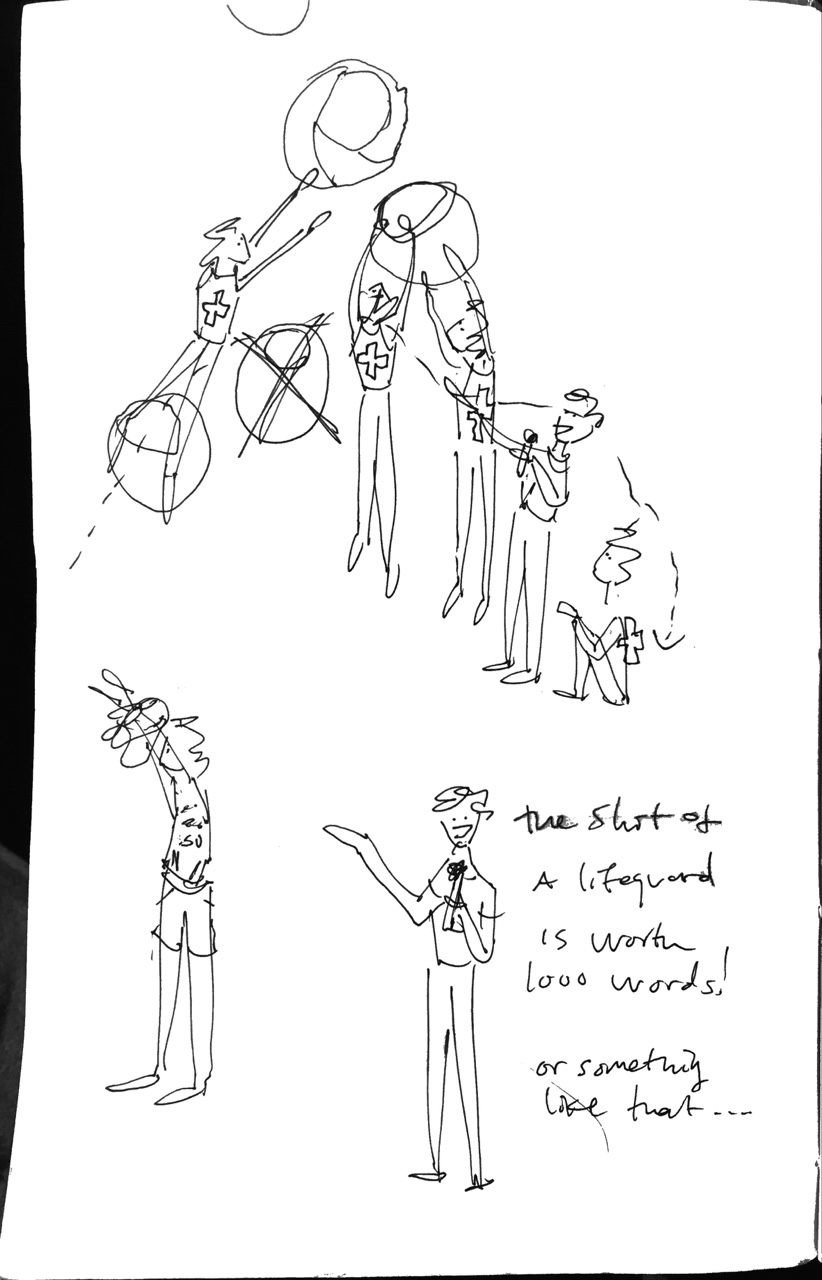 SO
the shot of
A lifeguard
is worth
1000 words!
or something
like that ---